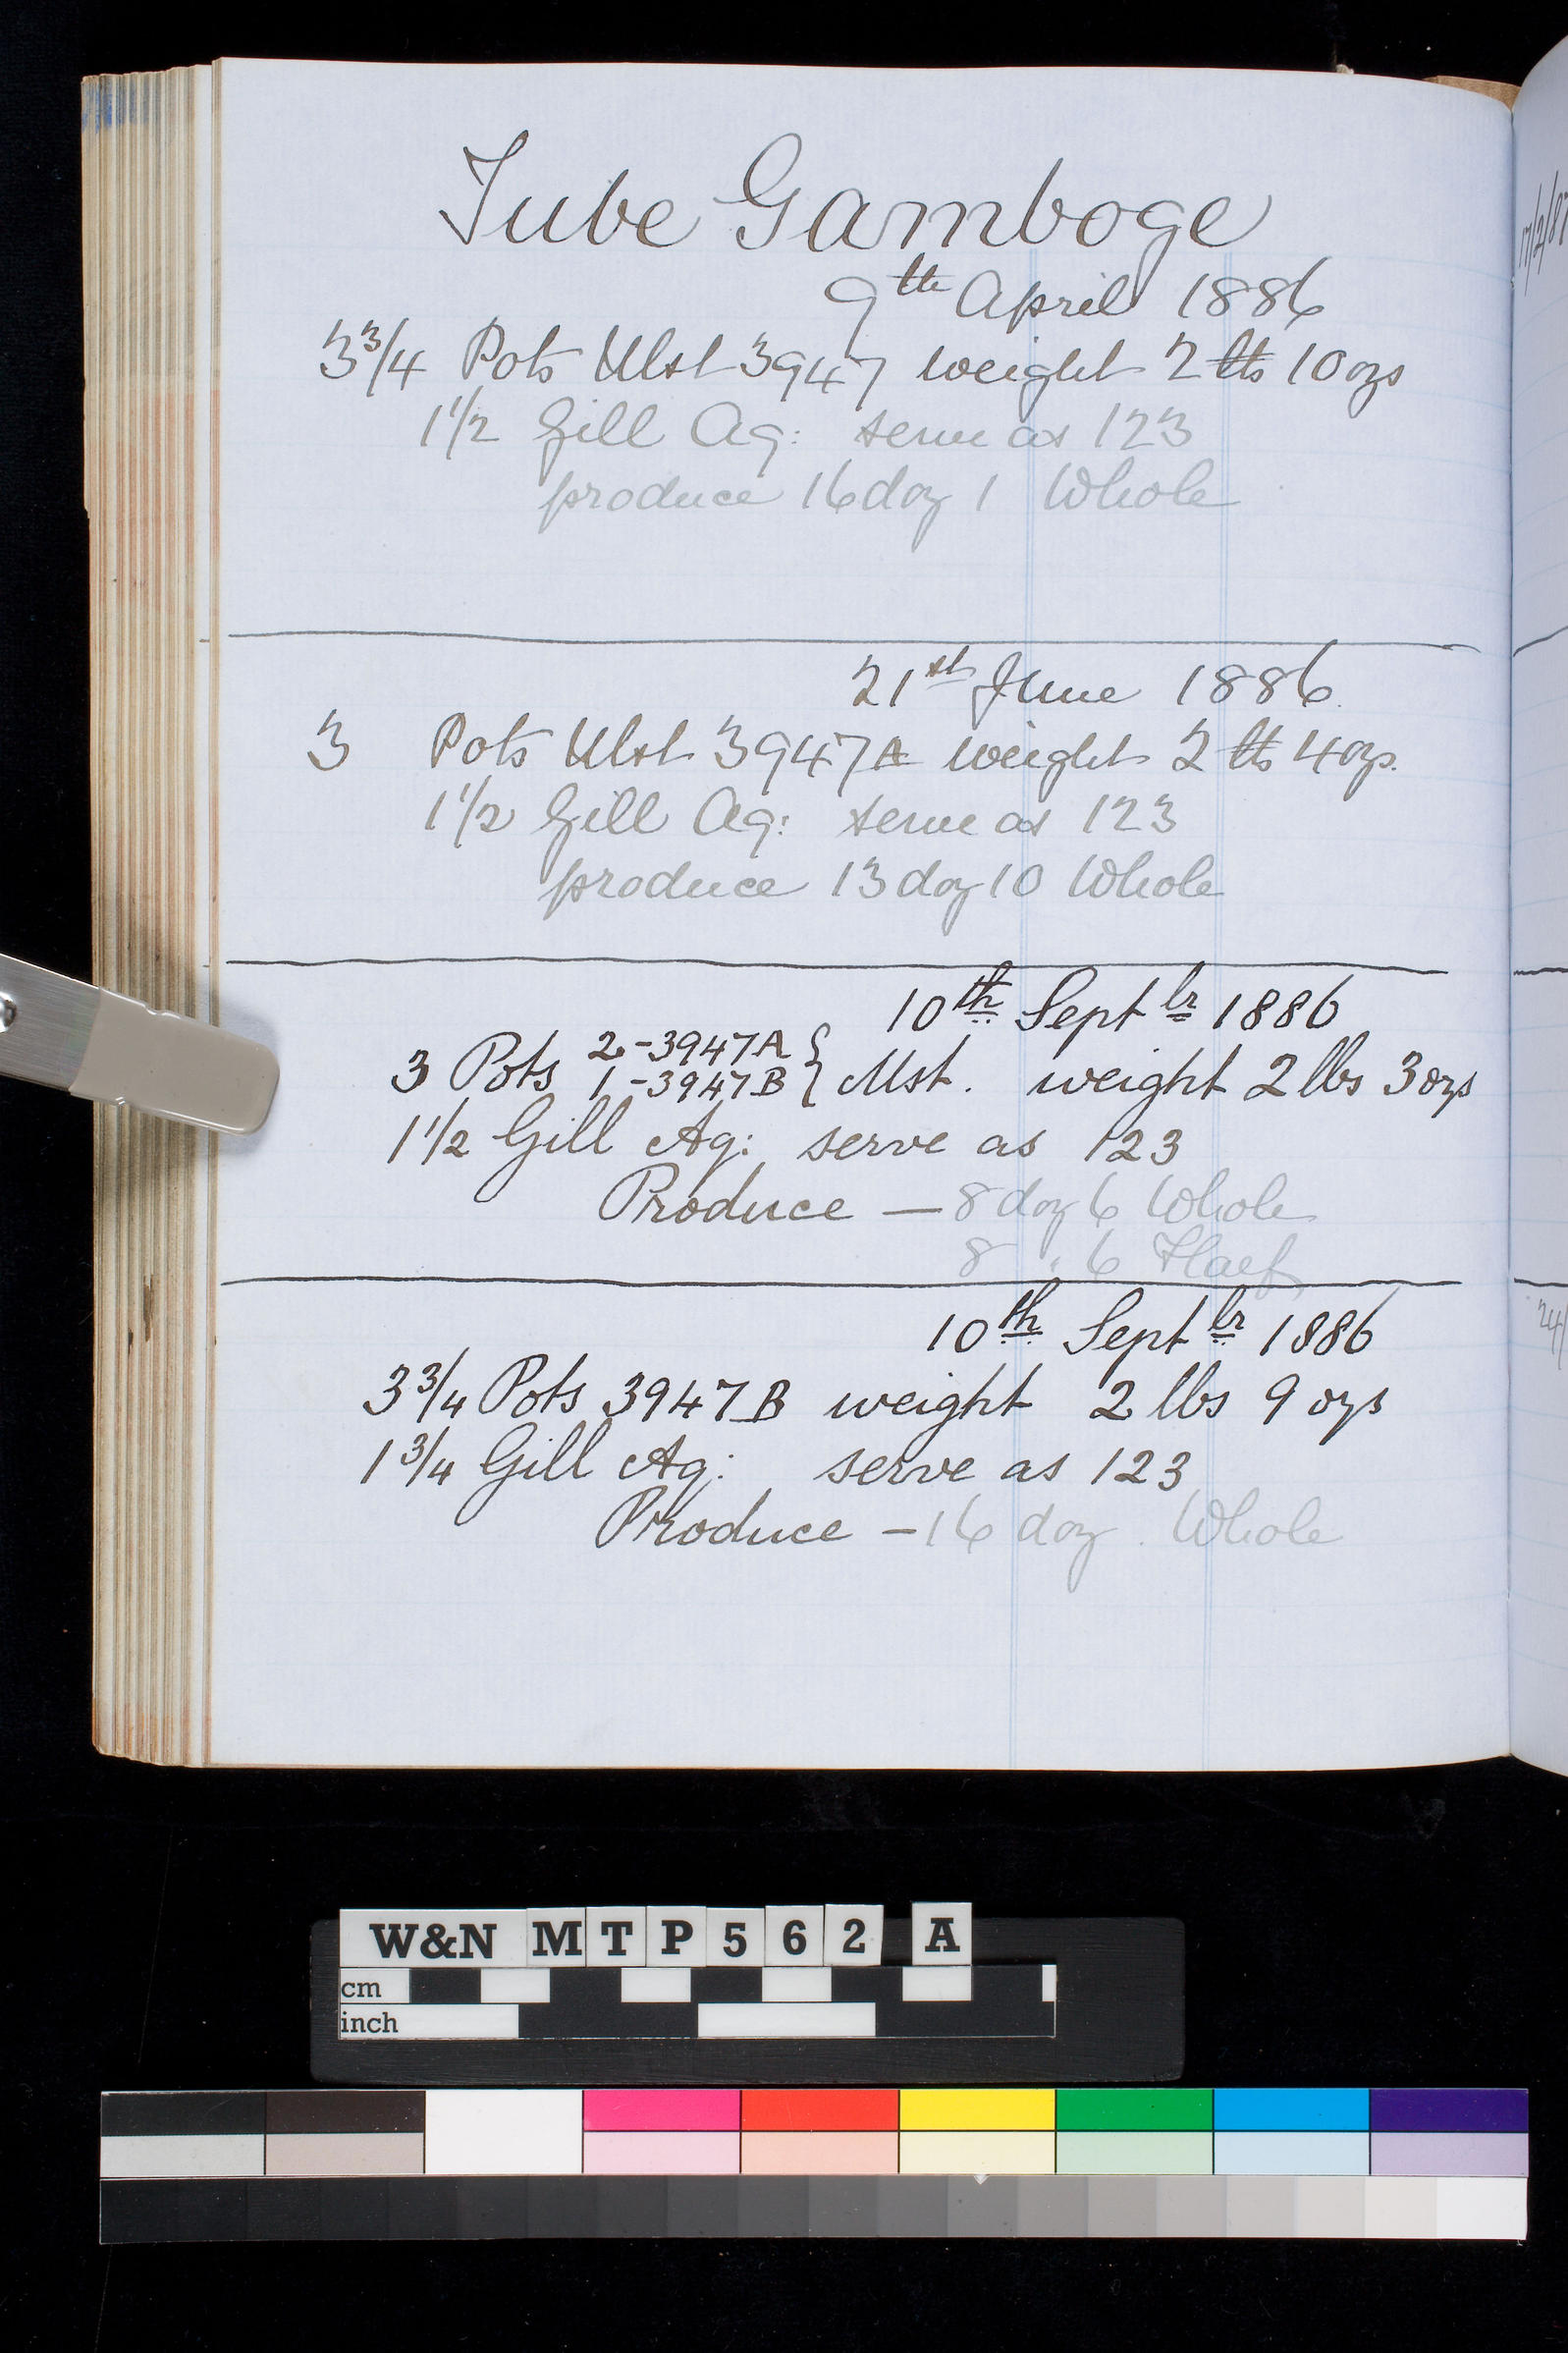 Tube Gamboge
9th April 1886
3 3/4 Pots Mst 3947 weight 2 lbs 10 ozs
1 1/2 Gill Aq: serve as 123
produce 16 doz 1 Whole
21st June 1886
3 Pots Mst 3947A weight 2 lbs 4 ozs.
1 1/2 Gill Aq: serve as 123
produce 13 doz 10 Whole
10th Septbr 1886
3 Pots 2 - 3947A } Mst. weight 2 lbs 3 ozs
1 - 3947B
1 1/2 Gill Aq: serve as 123
Produce — 8 doz 6 Whole
8 " 6 Half
10th Septbr 1886
3 3/4 Pots 3947B weight 2 lbs 9 ozs
1 3/4 Gill Aq: serve as 123
Produce — 16 doz . Whole
17/2/87
24/
W&N MTP562 A
cm
inch